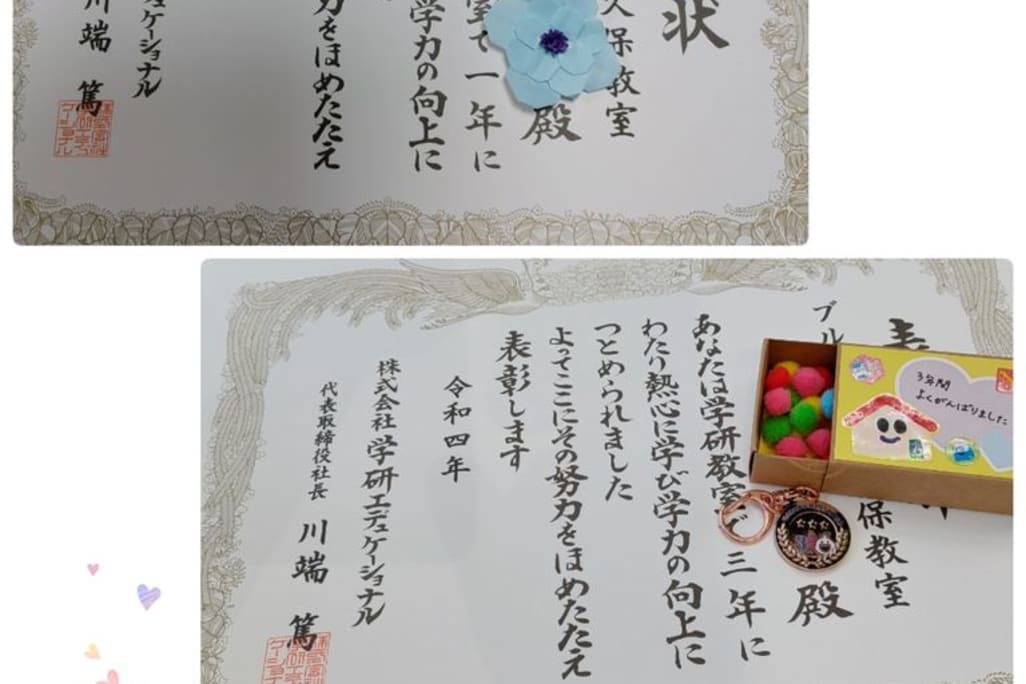 状
久保教室
殿
一年に
学力の向上に
力をほめたたえ
ュケーショナル
川端 篤
表
ブル
保教室
殿
あなたは学研教室で三年に
わたり熱心に学び学力の向上に
つとめられました
よってここにその努力をほめたたえ
表彰します
令和四年
株式会社 学研エデュケーショナル
代表取締役社長 川端 篤
3年間
よくがんばりました